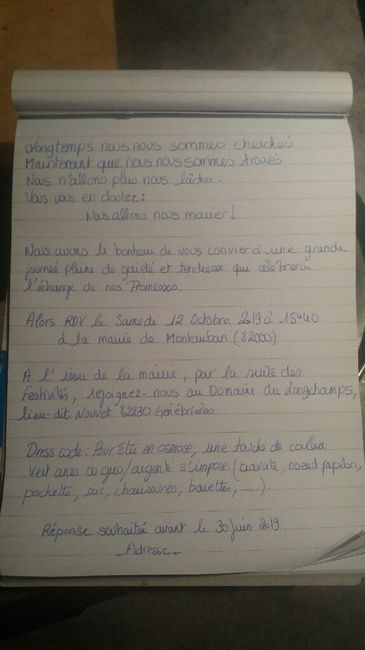 Longtemps nous nous sommes cherchés
Maintenant que nous nous sommes trouvés
Nous n'allons plus nous lâcher.
Vous vous en doutez :
Nous allons nous marier !
Nous avons le bonheur de vous convier à une grande
journée pleine de gaieté et tendresse qui célèbrera
l'échange de nos Promesses.
Alors RDV le Samedi 12 Octobre 2019 à 15h40
à la mairie de Montauban (82000)
A l'issu de la mairie, par la suite des
festivités, rejoignez-nous au Domaine du Longchamps,
lieu dit Nouvet 82230 Génébrières
Dress code : Pour être en osmose, une touche de couleur
vert anis ou gris/argenté s'impose (cravate, noeud papillon,
pochette, sac, chaussures, barrettes, .....)
Réponse souhaitée avant le 30 Juin 2019
_Adresse_